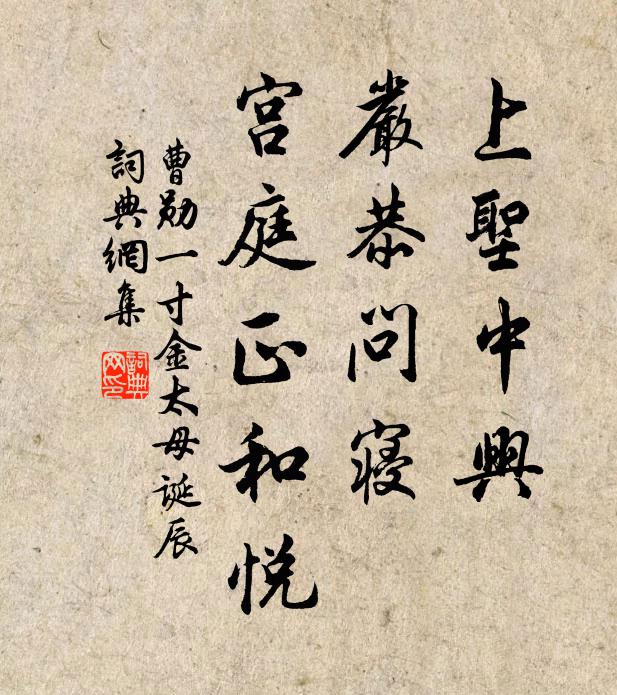 上聖中興
嚴恭問寝
宮庭正和悅
曹勛一寸金太母誕辰
詞典網集
詞典
网印